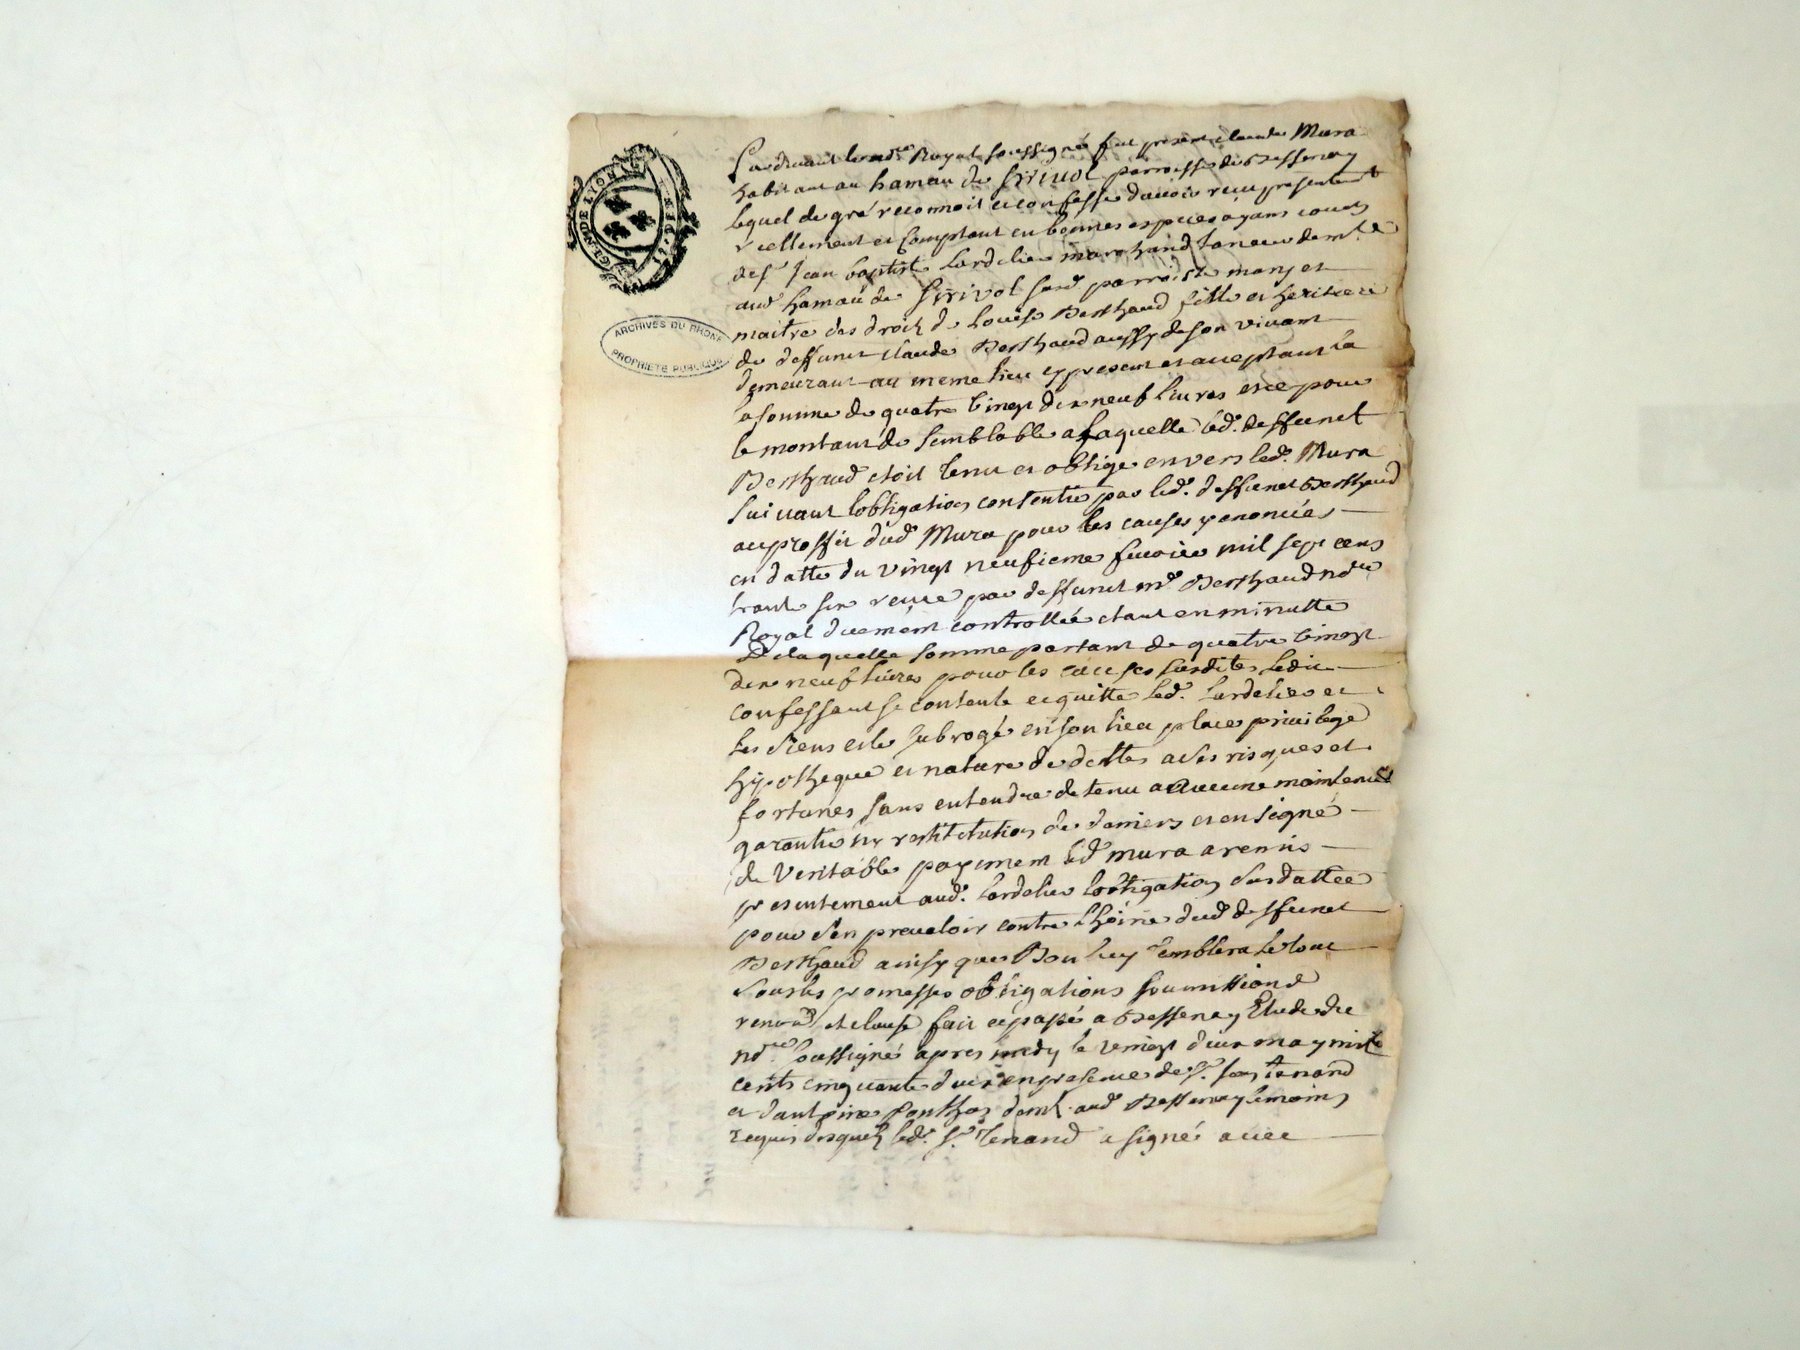 GEN. DE LYON
ARCHIVES DU RHONE
PROPRIÉTÉ PUBLIQUE
Pardevant le nore Royal soussigné fut present claude Mura
habitant au hameau de paroisse de Bessenay
lequel de gré reconnoit et confesse davoir reçu presentement
reellement et comptant en bonnes especes ayant cours
de sr Jean baptiste Lardelier marchand taneur demt
aud hamau de susd parroisse mary et
maitre des droits de Louise Berthaud fille et heritiere
de deffunct claude Berthaud aussy de son vivant
demeurant au meme lieu cy present et acceptant la
la somme de quatre vingt dix neuf livres et ce pour
le montant de semblable a laquelle led. deffunct
Berthaud etoit tenu et obligé envers led. Mura
suivant lobligation consentie par led. deffunct Berthaud
au proffit dud Mura pour les causes y enoncées
en datte du vingt neufieme fevrier mil sept cens
trante six reçue par deffunct me Berthaud nore
Royal duement controllée etant en minutte
De laquelle somme partant de quatre vingt
dix neuf livres pour les causes susdites ledit
confessant se contente et quitte led. Lardelier et
les siens et le subrogé en son lieu place privilege
hypotheque et nature de dette a ses risques et
fortunes sans entendre etre tenu a aucune maintenue
garantie ny restitution de deniers et en signe
de veritable payement led mura a remis
presentement aud. Lardelier lobligation susdattée
pour s'en prevaloir contre l'hoirie dud deffunct
Berthaud ainsy que Bon luy semblera le tout
sous les promesses obligations soumissions
renon et clause fait et passé a Bessenay Etude du
nore soussigné apres midy le vingt deux may mil
cents cinquante deux en presence de sr Tenand
et d'antoine Ponthus demt aud Bessenay temoins
requis desquels led. sr Tenand a signé avec